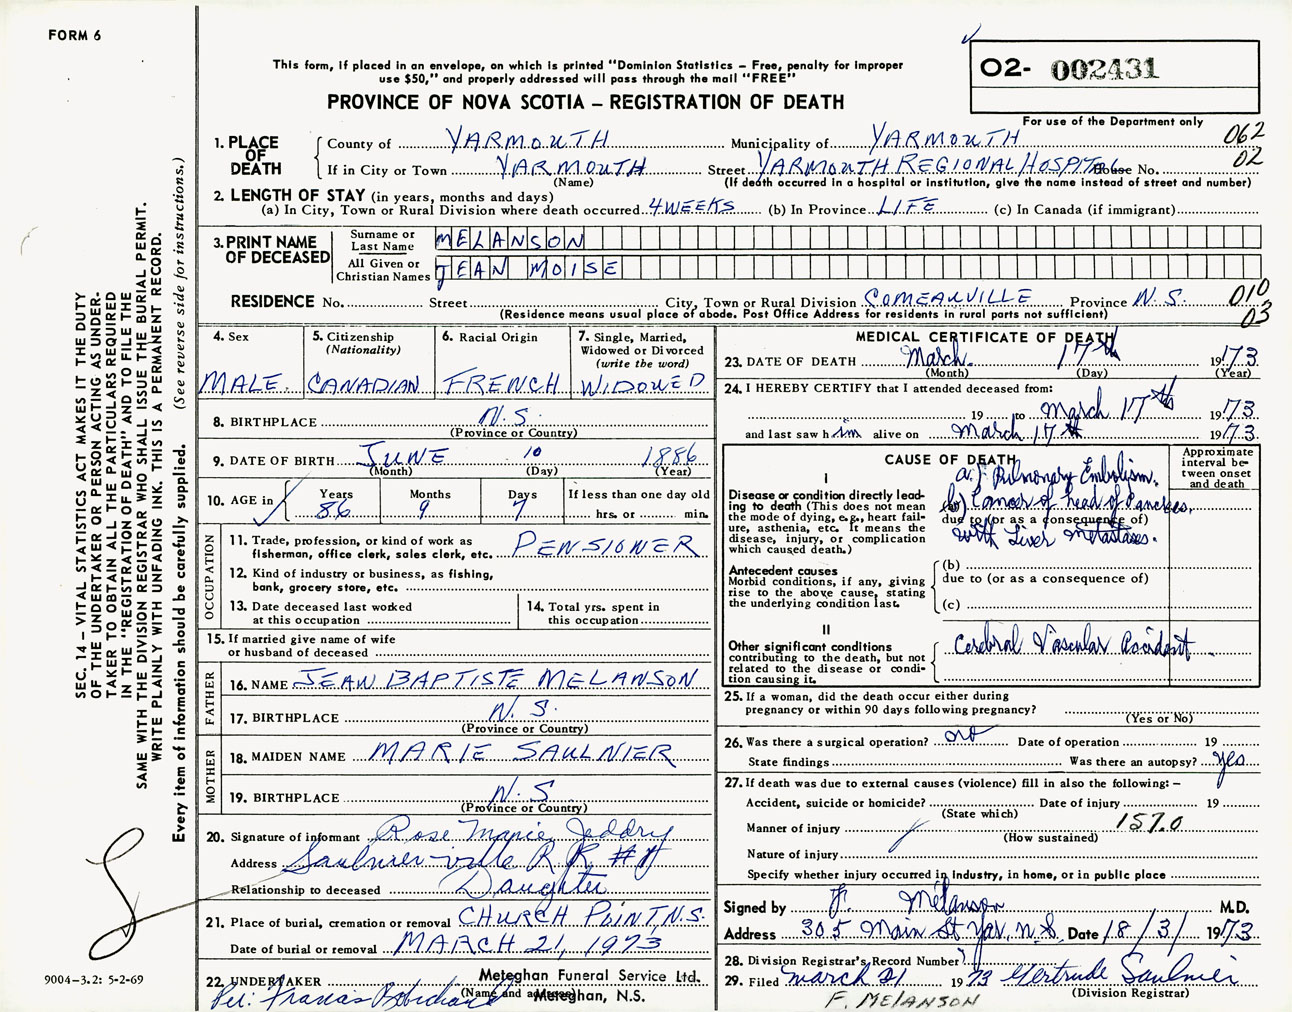 FORM 6
This form, if placed in an envelope, on which is printed "Dominion Statistics – Free, penalty for improper
use $50," and properly addressed will pass through the mail "FREE"
PROVINCE OF NOVA SCOTIA – REGISTRATION OF DEATH
O2- 002431
For use of the Department only
062
02
1. PLACE OF DEATH
County of YARMOUTH Municipality of YARMOUTH
If in City or Town YARMOUTH Street YARMOUTH REGIONAL HOSPITAL House No.
(Name) (If death occurred in a hospital or institution, give the name instead of street and number)
2. LENGTH OF STAY (in years, months and days)
(a) In City, Town or Rural Division where death occurred 4 WEEKS (b) In Province LIFE (c) In Canada (if immigrant)
3. PRINT NAME OF DECEASED
Surname or Last Name MELANSON
All Given or Christian Names JEAN MOISE
RESIDENCE No. Street City, Town or Rural Division COMEAUVILLE Province N.S.
(Residence means usual place of abode. Post Office Address for residents in rural parts not sufficient)
010
03
4. Sex
MALE
5. Citizenship
(Nationality)
CANADIAN
6. Racial Origin
FRENCH
7. Single, Married,
Widowed or Divorced
(write the word)
WIDOWED
8. BIRTHPLACE N.S.
(Province or Country)
9. DATE OF BIRTH JUNE 10 1886
(Month) (Day) (Year)
10. AGE in
Years Months Days If less than one day old
86 9 7 hrs. or min.
OCCUPATION
11. Trade, profession, or kind of work as
fisherman, office clerk, sales clerk, etc. PENSIONER
12. Kind of industry or business, as fishing,
bank, grocery store, etc.
13. Date deceased last worked
at this occupation
14. Total yrs. spent in
this occupation
15. If married give name of wife
or husband of deceased
FATHER
16. NAME JEAN BAPTISTE MELANSON
17. BIRTHPLACE N.S.
(Province or Country)
MOTHER
18. MAIDEN NAME MARIE SAULNIER
19. BIRTHPLACE N.S.
(Province or Country)
20. Signature of informant Rose Marie Jeddry
Address Saulnierville R.R. #
Relationship to deceased Daughter
21. Place of burial, cremation or removal CHURCH POINT, N.S.
Date of burial or removal MARCH 21, 1973
22. UNDERTAKER Meteghan Funeral Service Ltd.
(Name and address) Meteghan, N.S.
Per: Francis Robichaud
MEDICAL CERTIFICATE OF DEATH
23. DATE OF DEATH March 17th 1973
(Month) (Day) (Year)
24. I HEREBY CERTIFY that I attended deceased from:
19 to March 17th 1973
and last saw him alive on March 17th 1973
CAUSE OF DEATH
Approximate
interval be-
tween onset
and death
I
Disease or condition directly lead-
ing to death (This does not mean
the mode of dying, e.g., heart fail-
ure, asthenia, etc. It means the
disease, injury, or complication
which caused death.)
a.) Pulmonary Embolism.
(b) Cancer of head of Pancreas,
due to (or as a consequence of)
with Liver Metastases.
Antecedent causes
Morbid conditions, if any, giving
rise to the above cause, stating
the underlying condition last.
(b)
due to (or as a consequence of)
(c)
II
Other significant conditions
contributing to the death, but not
related to the disease or condi-
tion causing it.
Cerebral Vascular Accident
25. If a woman, did the death occur either during
pregnancy or within 90 days following pregnancy?
(Yes or No)
26. Was there a surgical operation? no Date of operation 19
State findings Was there an autopsy? yes
27. If death was due to external causes (violence) fill in also the following: –
Accident, suicide or homicide? Date of injury 19
(State which)
Manner of injury 157.0
(How sustained)
Nature of injury
Specify whether injury occurred in industry, in home, or in public place
Signed by F. Melanson M.D.
Address 305 Main St Yar, N.S. Date 18/3/ 1973
28. Division Registrar's Record Number
29. Filed March 21 1973 Gertrude Saulnier
(Division Registrar)
F. MELANSON
SEC. 14 – VITAL STATISTICS ACT MAKES IT THE DUTY
OF THE UNDERTAKER OR PERSON ACTING AS UNDER-
TAKER TO OBTAIN ALL THE PARTICULARS REQUIRED
IN THE "REGISTRATION OF DEATH" AND TO FILE THE
SAME WITH THE DIVISION REGISTRAR WHO SHALL ISSUE THE BURIAL PERMIT.
WRITE PLAINLY WITH UNFADING INK. THIS IS A PERMANENT RECORD.
Every item of information should be carefully supplied. (See reverse side for instructions.)
9004–3.2: 5-2-69